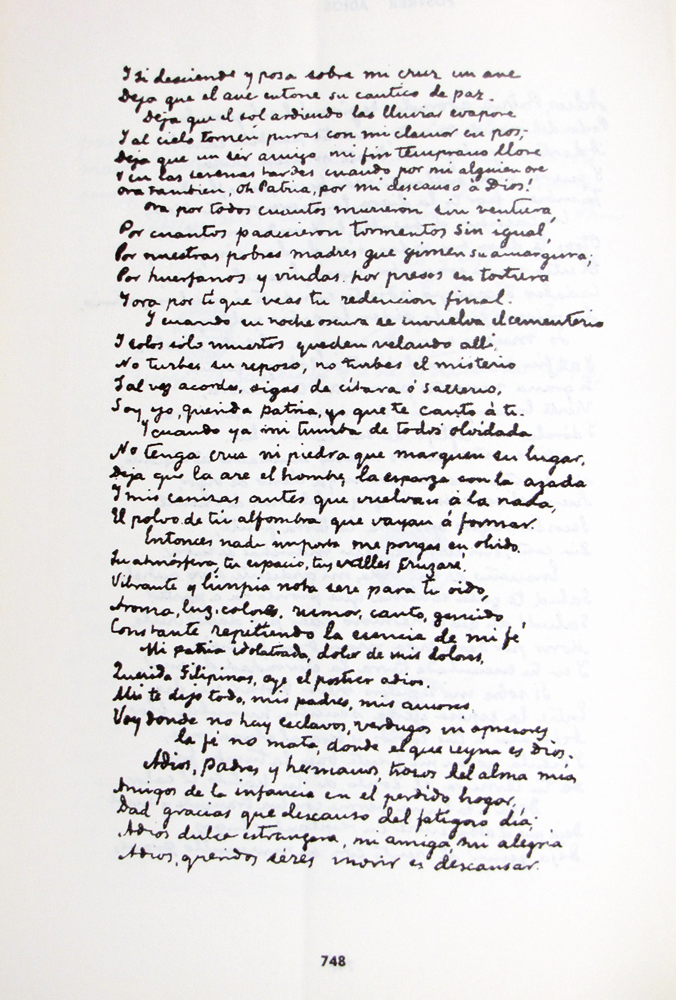 Y si desciende y posa sobre mi cruz un ave
Deja que el ave entone su cantico de paz.
Deja que el sol ardiendo las lluvias evapore
Y al cielo tornen puras con mi clamor en pos,
Deja que un ser amigo mi fin temprano llore
Y en las serenas tardes cuando por mi alguien ore
Ora tambien, Oh Patria, por mi descanso á Dios!
Ora por todos cuantos murieron sin ventura,
Por cuantos padecieron tormentos sin igual,
Por nuestras pobres madres que gimen su amargura;
Por huerfanos y viudas, por presos en tortura
Y ora por ti que veas tu redencion final.
Y cuando en noche oscura se envuelva el cementerio
Y solos sólo muertos queden velando allí,
No turbes su reposo, no turbes el misterio
Tal vez acordes oigas de citara ó salterio,
Soy yo, querida Patria, yo que te canto á ti.
Y cuando ya mi tumba de todos olvidada
No tenga cruz ni piedra que marquen su lugar,
Deja que la are el hombre, la esparza con la azada
Y mis cenizas antes que vuelvan á la nada,
El polvo de tu alfombra que vayan á formar.
Entonces nada importa me pongas en olvido.
Tu atmósfera, tu espacio, tus valles cruzaré.
Vibrante y limpia nota seré para tu oido,
Aroma, luz, colores, rumor, canto, gemido,
Constante repitiendo la esencia de mi fé
Mi patria idolatrada, dolor de mis dolores,
Querida Filipinas, oye el postrer adios.
Ahi te dejo todo, mis padres, mis amores.
Voy donde no hay esclavos, verdugos ni opresores,
la fé no mata, donde el que reyna es Dios.
Adios, Padres y hermanos, trozos del alma mía,
Amigos de la infancia en el perdido hogar,
Dad gracias que descanso del fatigoso día;
Adios dulce estrangera, mi amiga, mi alegria
Adios, queridos séres morir es descansar.
748